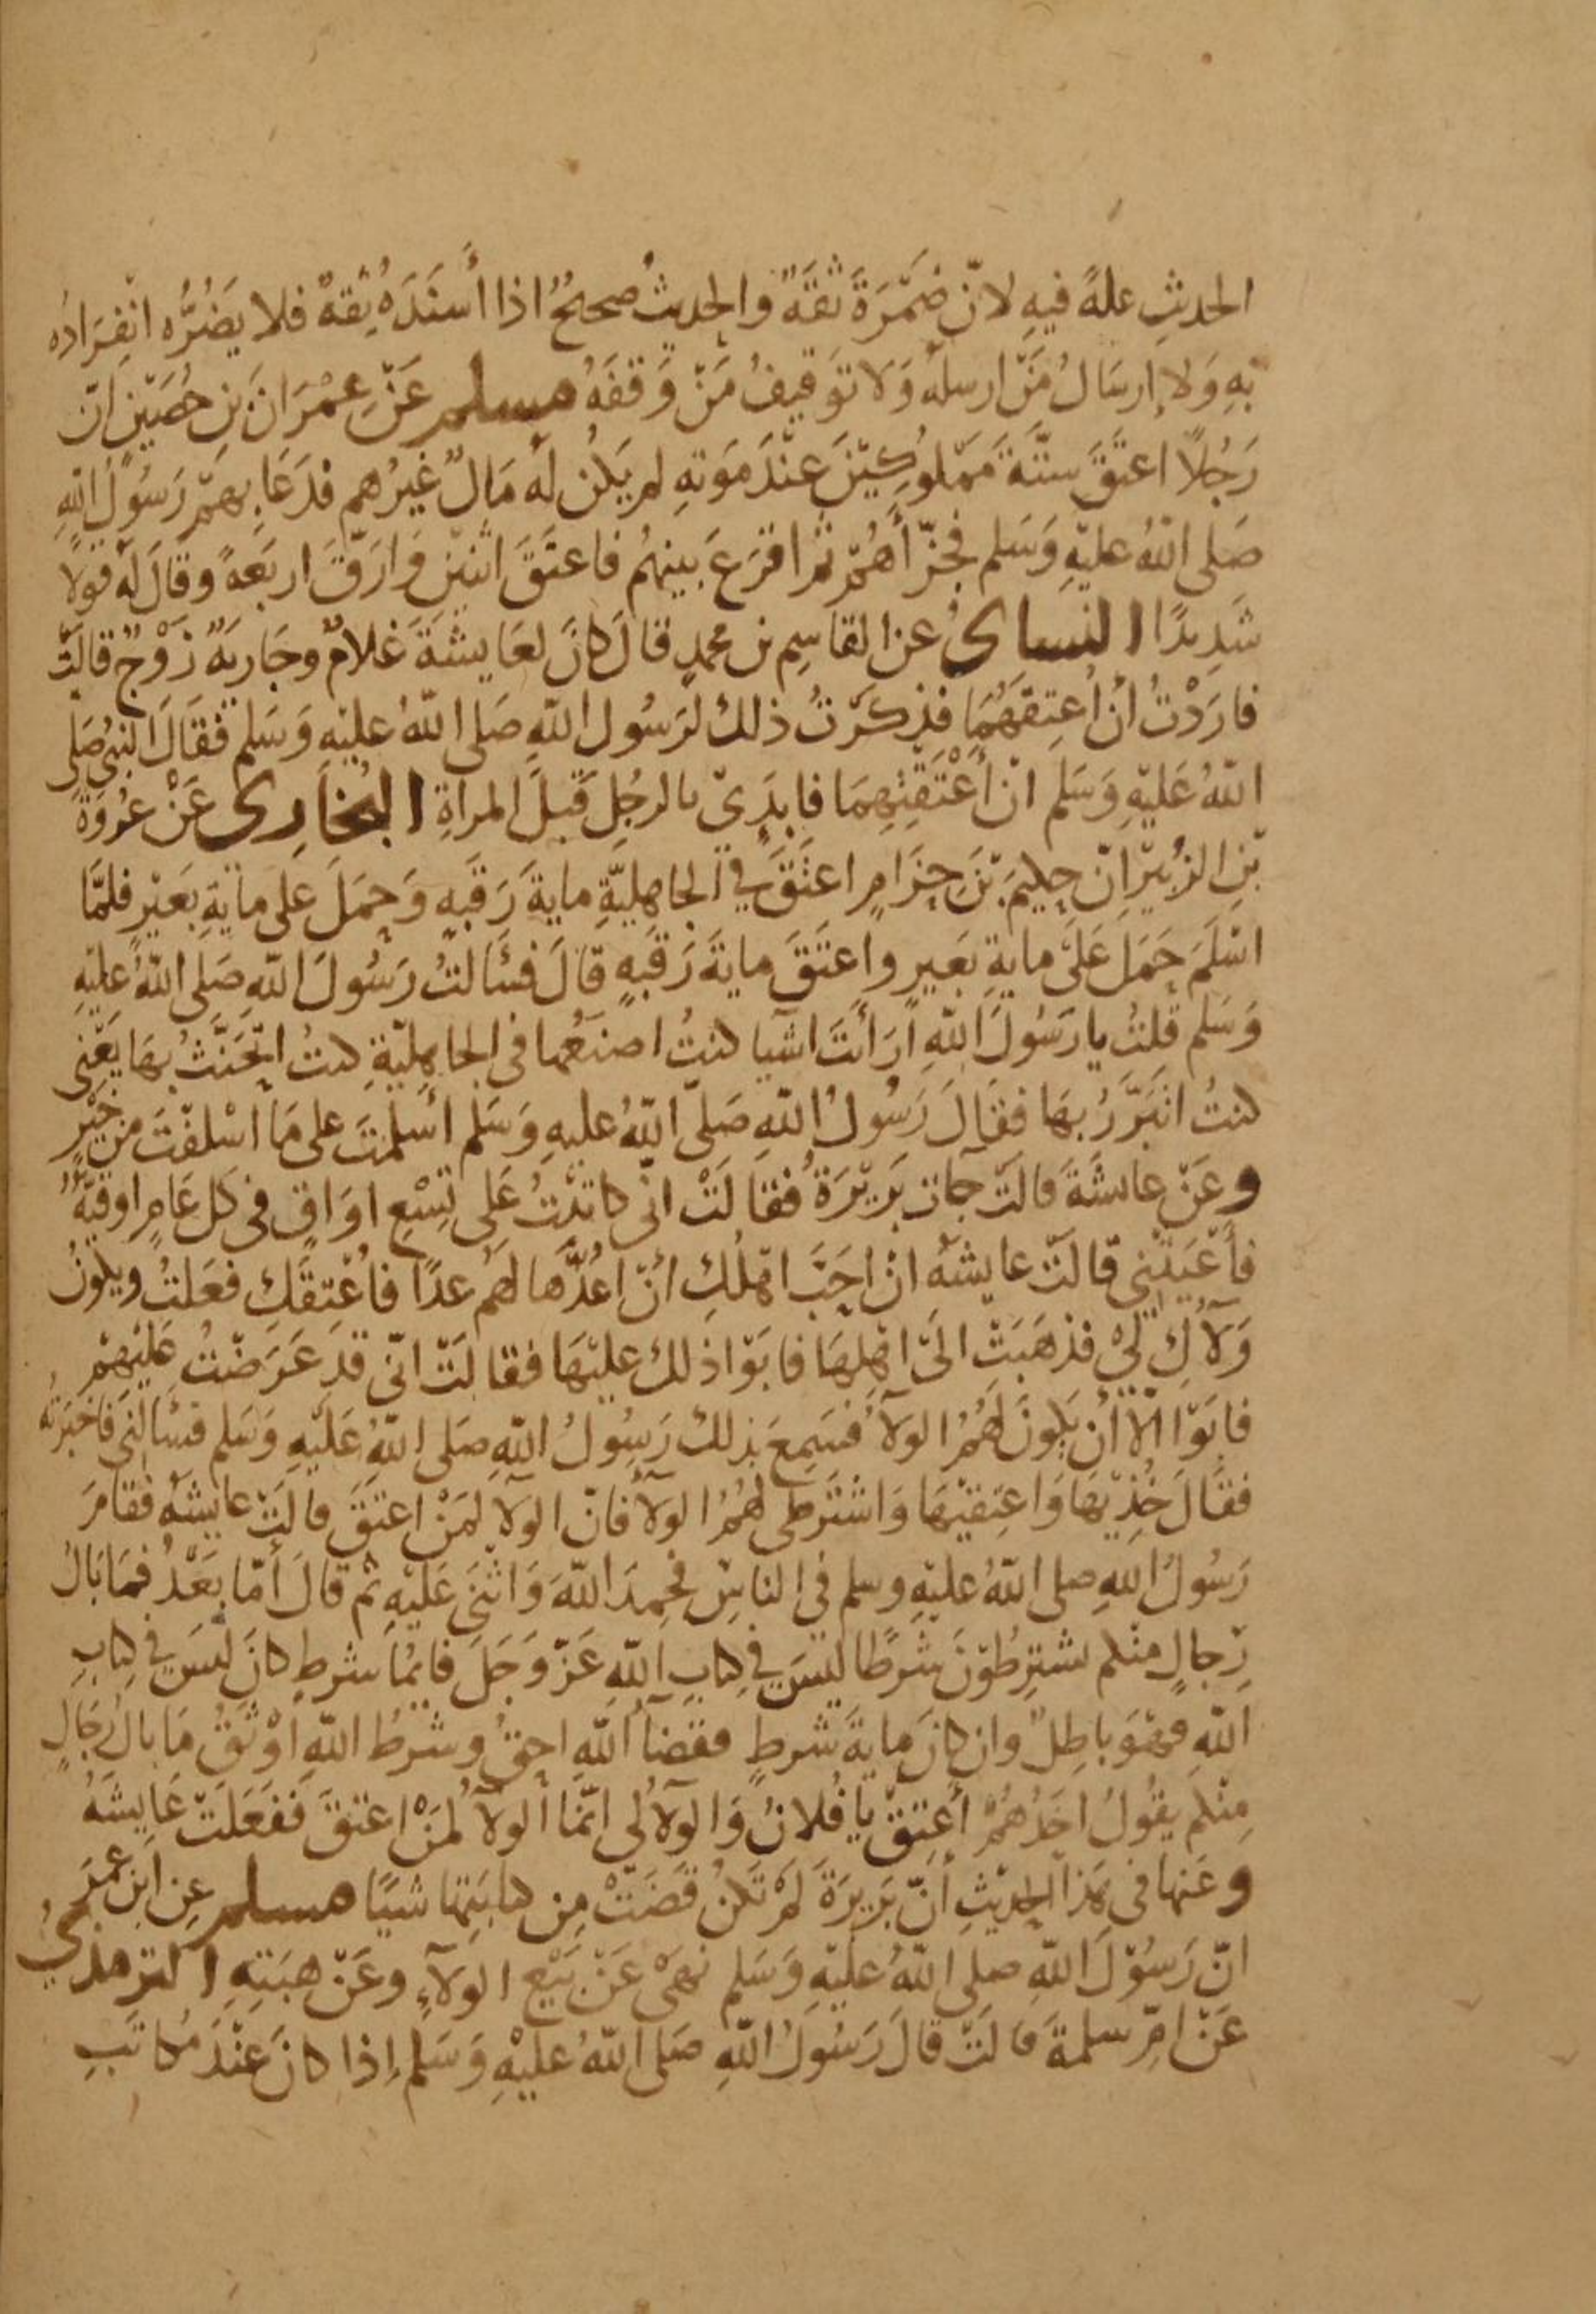 الحديث علةً فيهِ لانّ ضَمْرَةَ ثقَةٌ والحديثُ صحيحٌ اذا أَسنَدَهُ ثِقةٌ فلا يَضُرُّه انْفِرَادُه
بهِ وَلا إرسَالُ مَنْ ارسلهُ وَلا توَقيفُ مَنْ وَقفَهُ مسلم عَنْ عِمْرَانَ بنِ حُصَيْنٍ انّ
رَجُلاً اعتَقَ ستّةَ مَمْلُوكِيْنَ عِنْدَ مَوتهِ لم يَكُن لهُ مَالٌ غيرُهم فدَعَا بهمْ رَسُولُ اللهِ
صَلى اللهُ عليْهِ وَسَلم فجزّأهُمْ ثم اقرَعَ بينهُم فاعتَقَ اثنيْنِ وَارَقّ اربَعةً وقالَ لهُ قولاً
شَدِيدًا النساىُ عن القاسِم بن محمدٍ قالَ كانَ لعَايشَةَ غلامٌ وجَاريَةٌ زَوْجٌ قالَتْ
فارَدْتُ أنْ اُعتِقَهُمَا فذكَرتُ ذلك لرَسُول اللهِ صَلى اللهُ عليْهِ وَسَلم فقالَ النبىُ صَلى
اللهُ عَليْهِ وَسَلم انْ أَعْتَقتِهِمَا فابدَىْ بالرجُلِ قَبلَ المراةِ البُخَارِى عَنْ عُروَةَ
بْنِ الزبيْرِ انّ حكِيمَ بْنَ حِزَامٍ اعتَقَ في الجاهِليَّةِ مايةَ رَقبَهٍ وَحمَلَ على مايَةِ بَعيْرٍ فلمَّا
اسْلَمَ حَمَلَ عَلى مايةِ بَعيرٍ واعتَقَ مايةَ رَقبَهٍ قالَ فسَالتُ رَسُولَ اللهِ صَلى اللهُ عليْهِ
وَسَلم قلتُ يا رَسُولَ اللهِ ارَايْتَ اشيا كنتُ اصنعُها فى الجاهِليّةِ كنتُ اتحَنّثُ بهَا يَعْنِى
كنتُ اتبَرَّرُ بهَا فقالَ رَسُولُ اللهِ صَلى اللهُ عليهِ وَسَلم اسلمْتَ على مَا اسْلفْتَ من خَيْرٍ
وعَنْ عايشَةَ قالَتْ جآت بَرِيْرَةُ فقالَتْ انّى كاتَبْتُ عَلى تِسْعِ اوَاقٍ فى كل عَامٍ اوقيَّهٌ
فأعْيَتْنِى قالَتْ عايشَهُ انْ احَبَّ اهْلُكِ أنْ اعُدَّها لهُم عدًا فاُعْتِقَكِ فعَلتُ ويكُونُ
وَلآؤكِ لىْ فذهَبَتْ الىَ اهْلِهَا فابَوْا ذلكَ عليْهَا فقالَتْ انّى قد عَرَضْتُ عَليْهِمْ
فابَوْا الّا أنْ يَكُونَ لهُمُ الولآُ فسَمِعَ بذلكَ رَسُولُ اللهِ صَلى اللهُ عَليْهِ وَسَلم فسَالنِى فاخبَرتُه
فقالَ خُذِيْهَا وَاعتِقيْهَا وَاشْتَرطى لهُمُ الولآَ فانّ الولآ لمَنْ اعتَقَ قالَتْ عايشَهُ فقامَ
رَسُولُ اللهِ صلى اللهُ عليْهِ وسلم في الناسِ فحمِدَ اللهَ وَاثنَى عَليْهِ ثم قالَ أمّا بَعْدُ فمَا بَالُ
رِجالٍ منكم يشترِطُوْنَ شَرطًا ليْسَ في كِتابِ اللهِ عَزّ وَجَلَ فايمُّا شرطٍ كانَ ليْسَ في كِتابِ
اللهِ فهْوَ باطِلٌ وان كانَ مايةَ شَرطٍ فقضآُ اللهِ احقُ وشرطُ اللهِ اوْثَقُ مَا بالُ رِجَالٍ
مِنكم يقُولُ احَدُهُمْ أعتِقْ يا فُلانُ وَالولآُ لى انّما الولآُ لمَنْ اعتقَ ففعَلَتْ عَايشَهُ
وعَنها فى هَذا الحديْثِ أنّ بَرِيرَةَ لَمْ تكنْ قضَتْ مِن كتابَتِها شيًا مسلم عن ابن عُمَرَ
انّ رَسُوْلَ اللهِ صلى اللهُ عليْهِ وَسَلم نهَىْ عَنْ بَيْعِ الولآءِ وعَنْ هبَتِهِ الترمذيُ
عَنْ امِّ سلمةَ قالَتْ قالَ رَسُولُ اللهِ صَلى اللهُ عليْهِ وَسَلم إذا كانَ عِنْدَ مُكاتَبِ